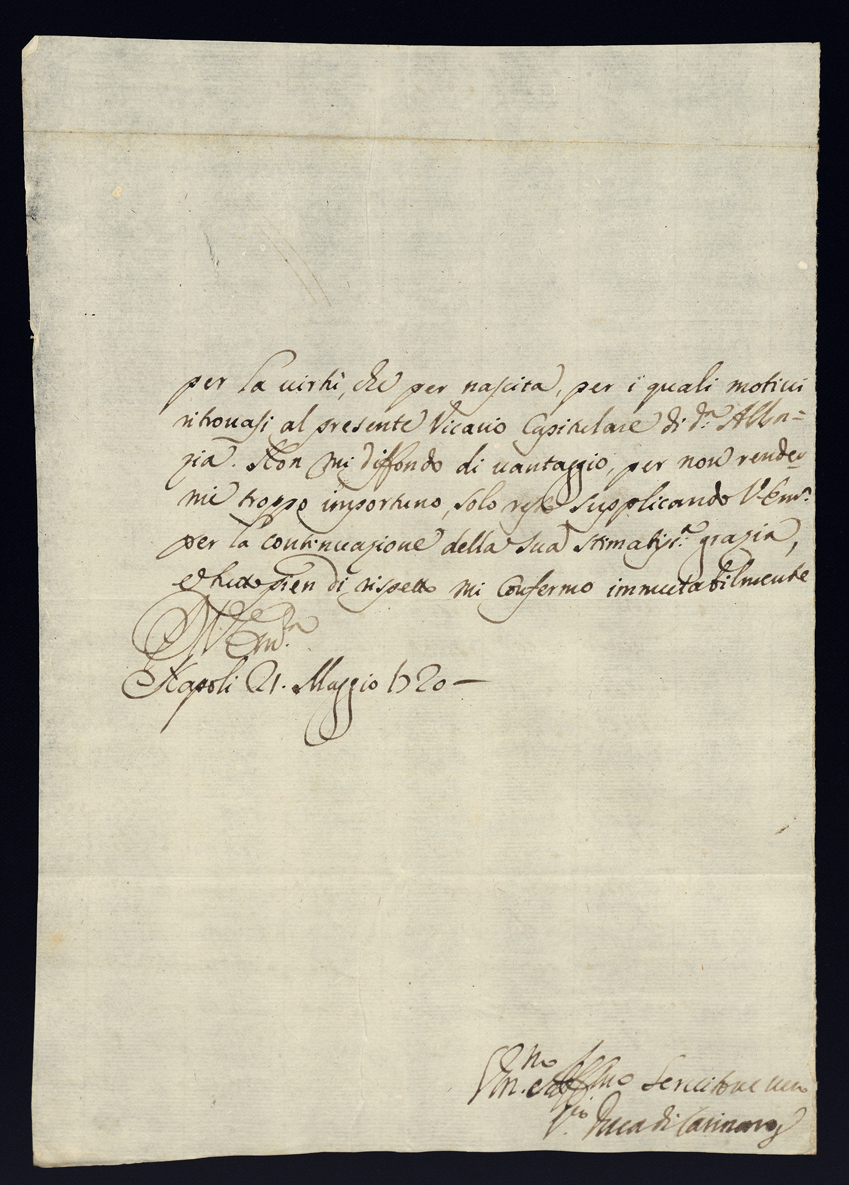 per la uirtù, che per nascita, per i quali motiui
ritrouasi al presente Vicario Capitulare di d.ª Abba=
zia. Non mi diffondo di uantaggio, per non render=
mi troppo importuno, solo resto supplicando V. Em.ª
per la continuazione della sua stimatiss.ª grazia,
e pien di rispetto mi confermo immutabilmente
Di V. Em.ª
Napoli 21. Maggio 1720 —
Seruitore uero
Duca di Casinaro